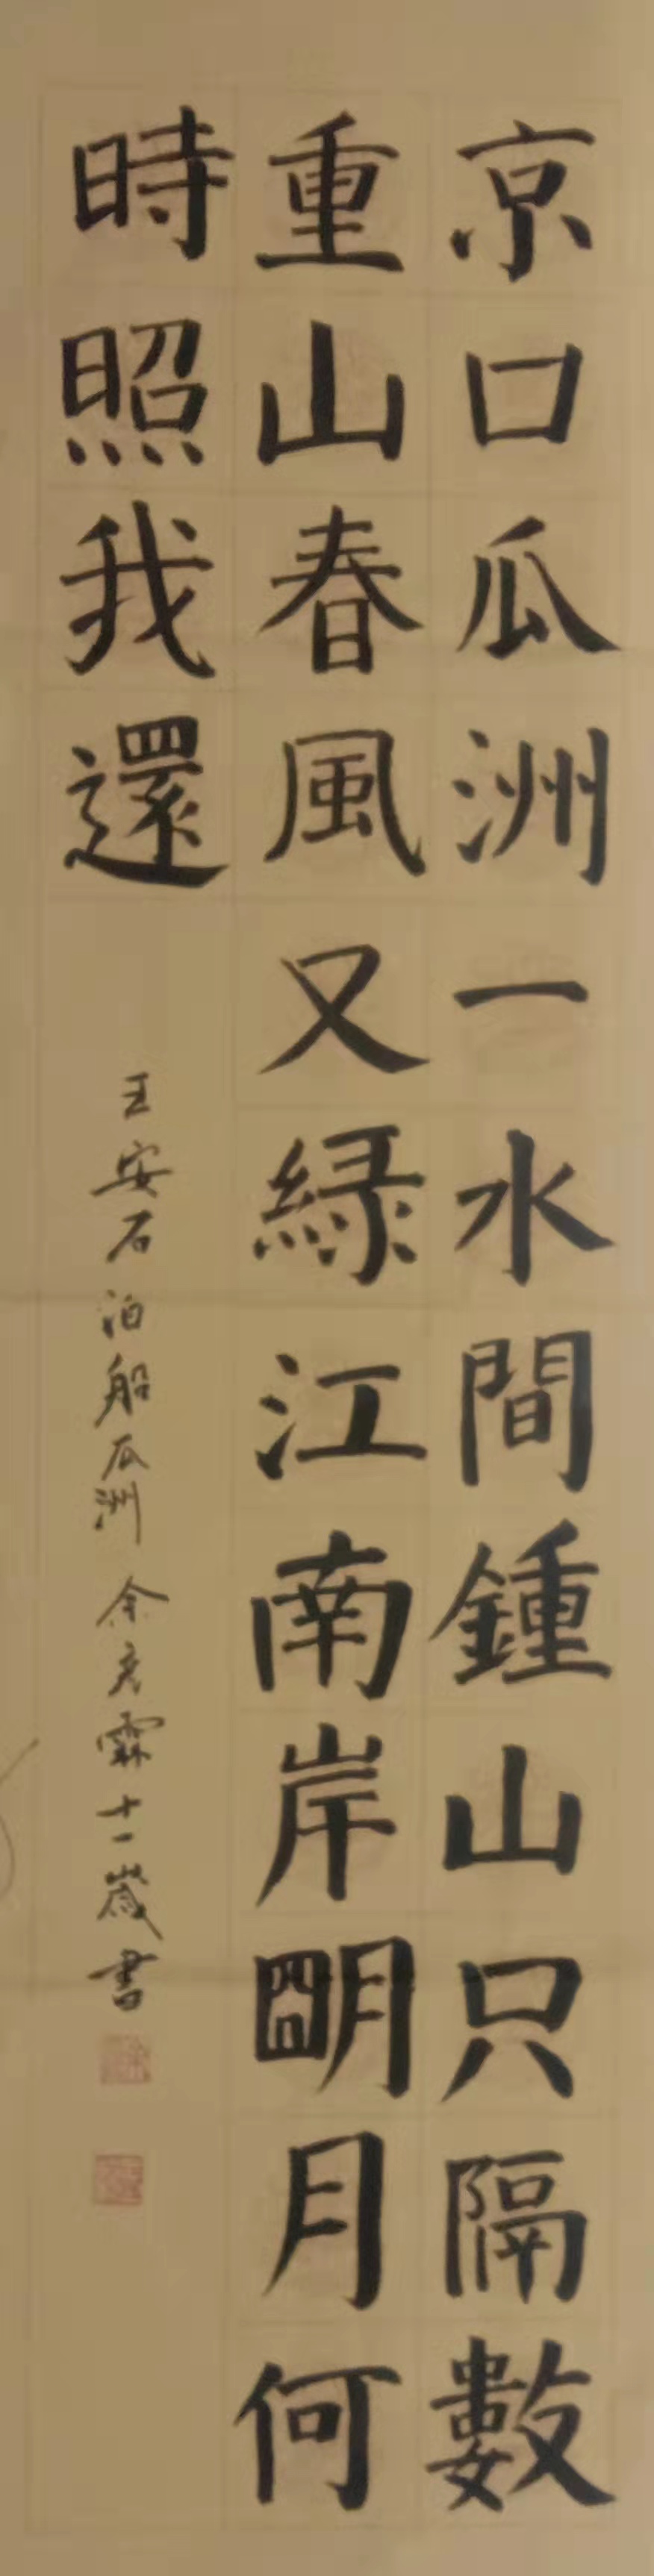 京口瓜洲一水間鍾山只隔數
重山春風又綠江南岸朙月何
時照我還
王安石泊船瓜洲 余彥霖十一歲書